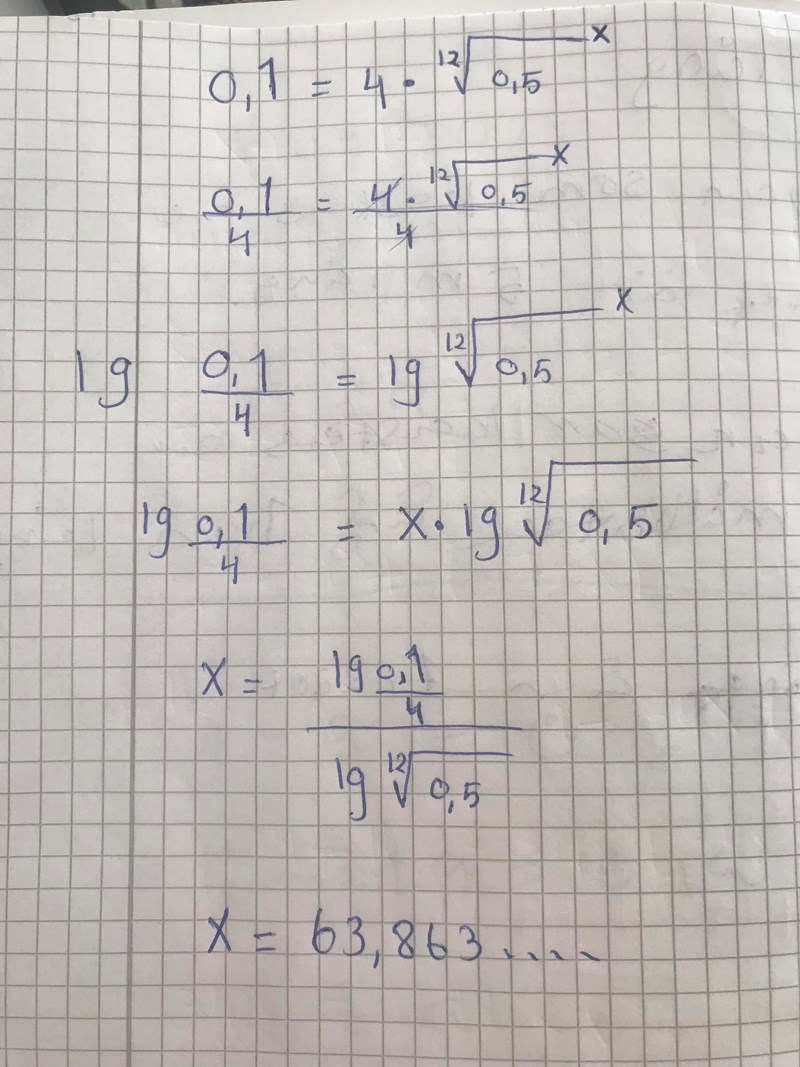 0,1 = 4 · ¹²√0,5 ˣ
0,1/4 = 4 · ¹²√0,5 ˣ/4
lg 0,1/4 = lg ¹²√0,5 ˣ
lg 0,1/4 = x · lg ¹²√0,5
x = lg 0,1/4 / lg ¹²√0,5
x = 63,863....